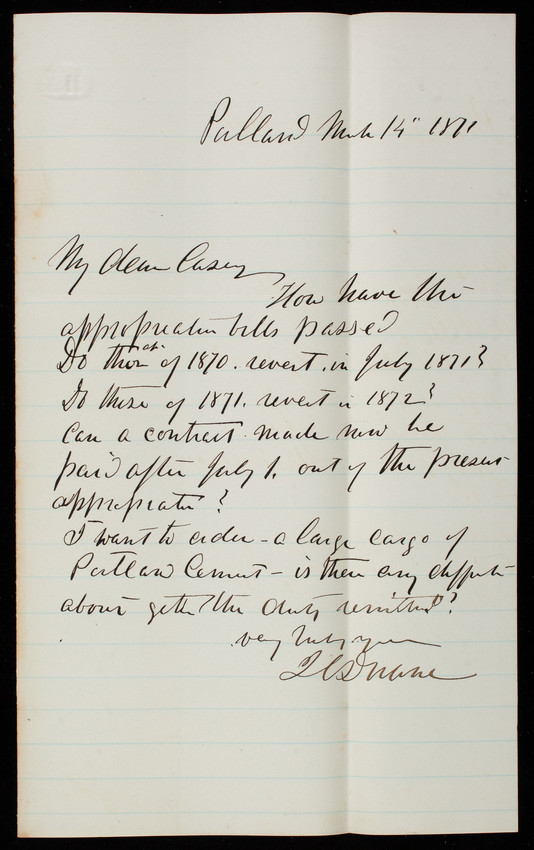 Portland Mch 14" 1871
My dear Casey
How have the
appropriation bills passed
Do those of 1870. revert in July 1871?
Do those of 1871. revert in 1872?
Can a contract made now be
paid after July 1. out of the present
appropriation?
I want to order - a large cargo of
Portland Cement - is there any difficulty
about getting the duty remitted?
very truly yours
J C Duane